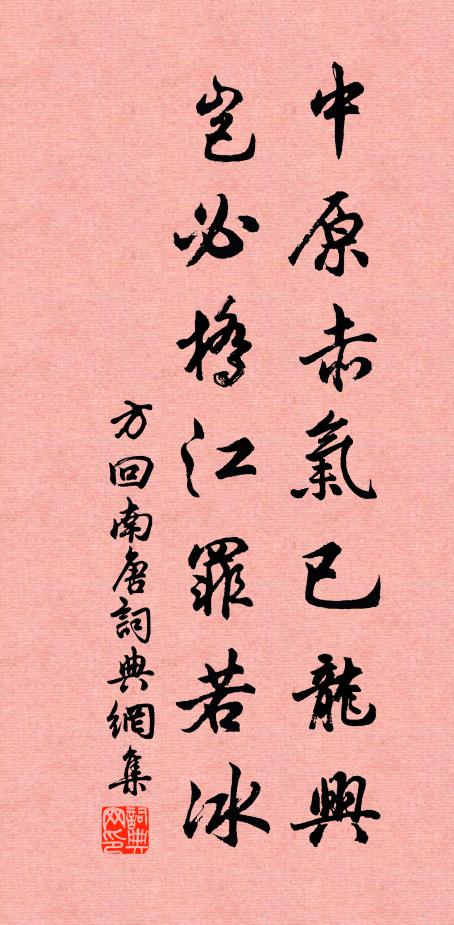 中原赤氣已龍興
豈必橋江罪若冰
方回南唐詞典網集
詞典網印